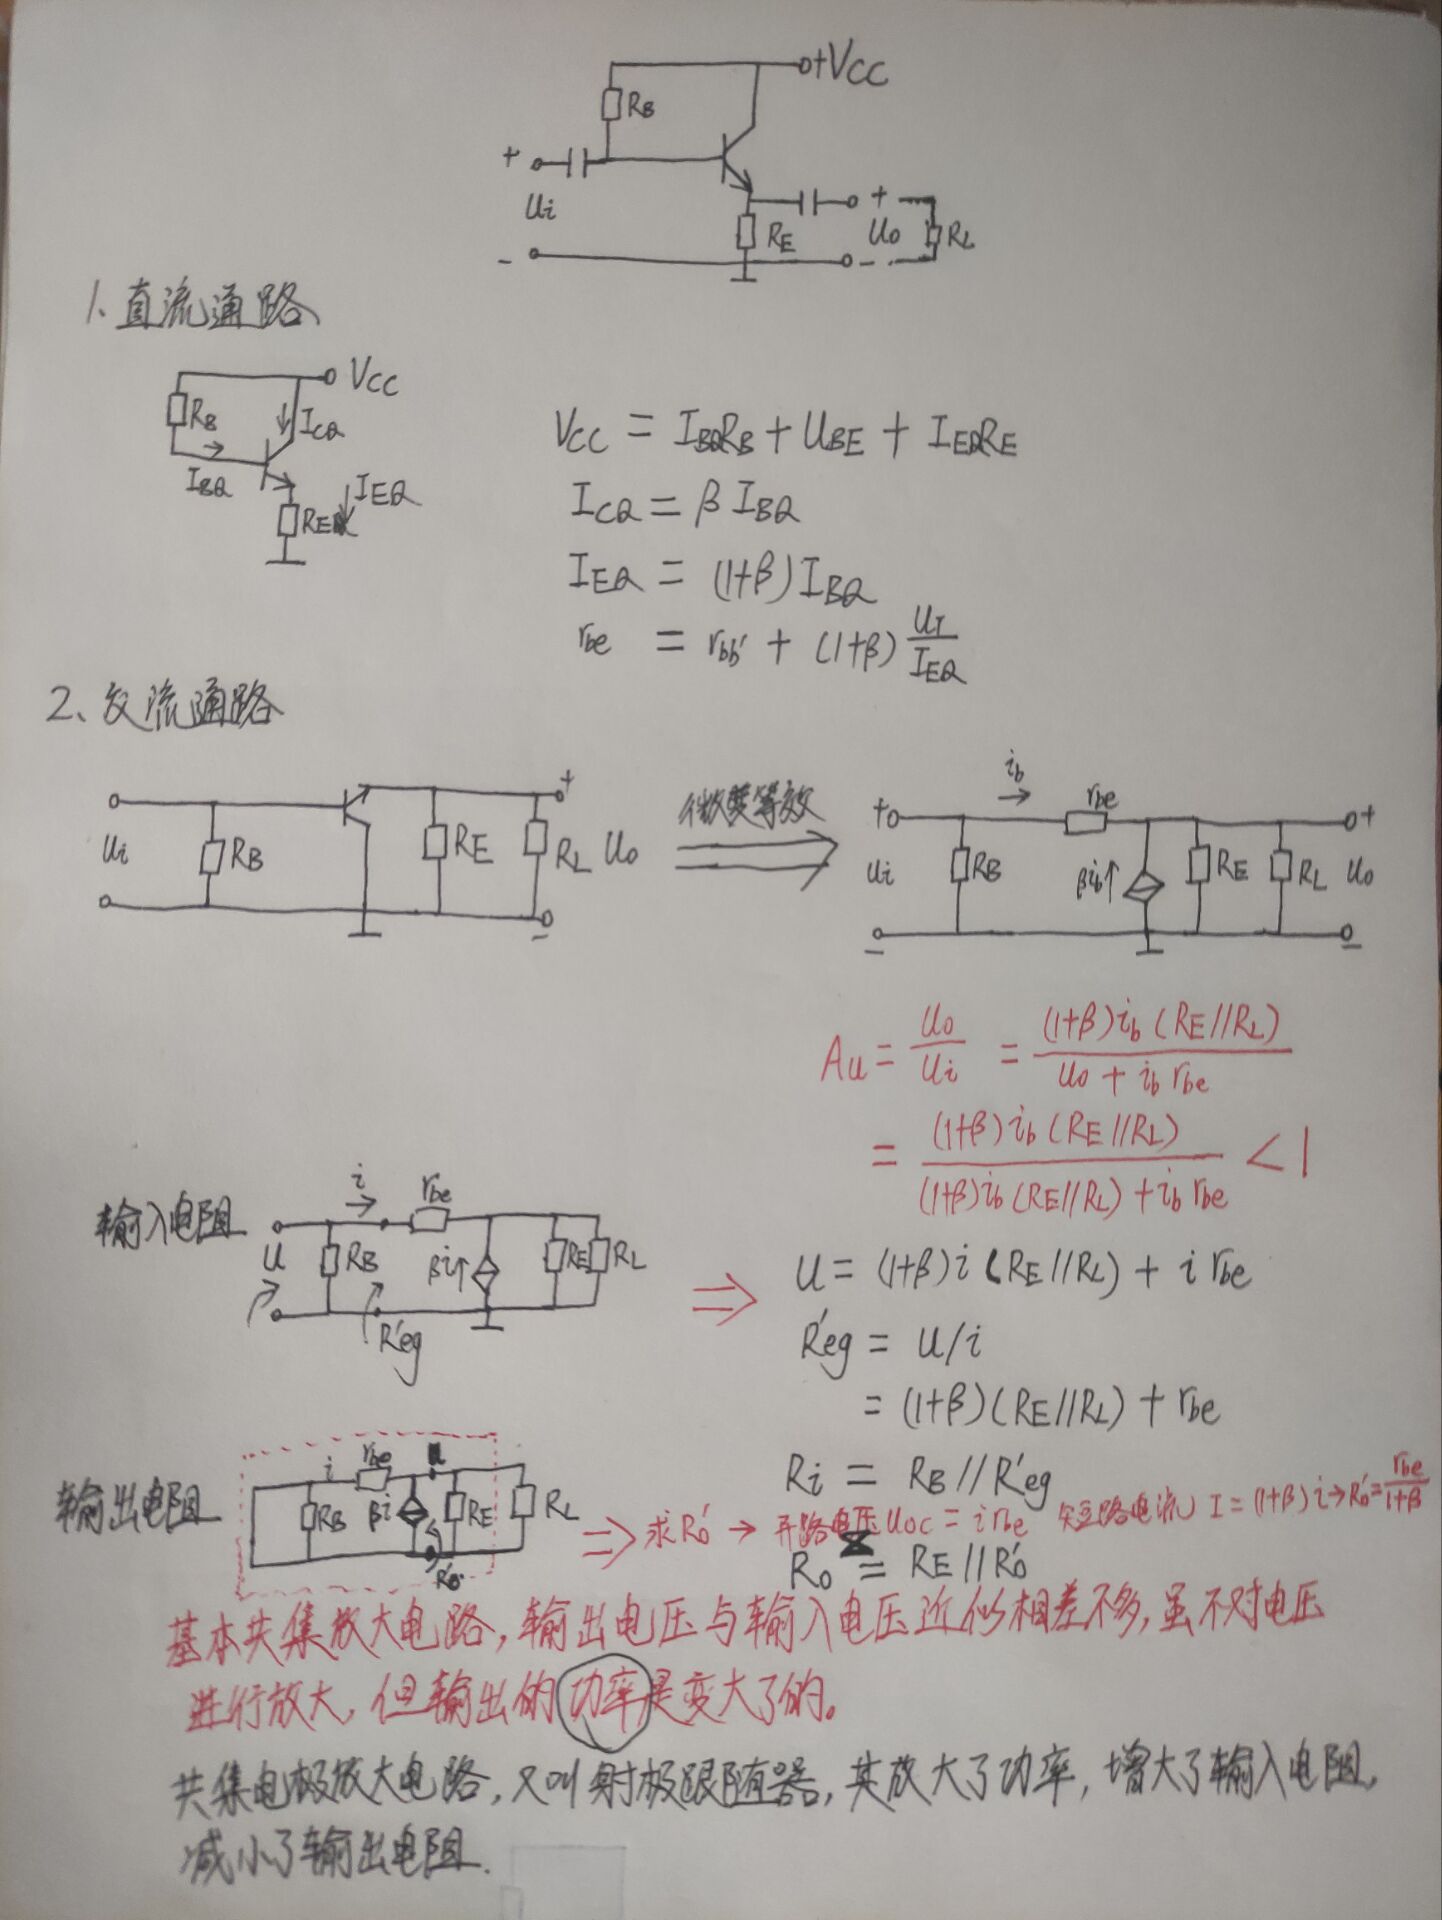 +VCC
RB
+
Ui
+
RE
Uo
RL
-
-
1、直流通路
VCC
RB
ICQ
IBQ
IEQ
RE
VCC = IBQRB + UBE + IEQRE
ICQ = β IBQ
IEQ = (1+β) IBQ
rbe = rbb' + (1+β) UT/IEQ
2、交流通路
Ui
RB
RE
RL
+
Uo
-
微变等效
ib
rbe
+
Ui
-
RB
βib
RE
RL
+
Uo
-
Au = Uo/Ui = (1+β)ib(RE//RL) / Uo + ib rbe
= (1+β)ib(RE//RL) / (1+β)ib(RE//RL) + ib rbe < 1
输入电阻
i
rbe
U
RB
βi
RE
RL
R'eg
U = (1+β)i(RE//RL) + i rbe
R'eg = U/i
= (1+β)(RE//RL) + rbe
Ri = RB // R'eg
输出电阻
i
rbe
RB
βi
RE
RL
R'o
⇒ 求R'o → 开路电压Uoc = i rbe 短路电流 I = (1+β)i → R'o = rbe/1+β
Ro = RE // R'o
基本共集放大电路,输出电压与输入电压近似相差不多,虽不对电压
进行放大,但输出的功率是变大了的。
共集电极放大电路,又叫射极跟随器,其放大了功率,增大了输入电阻,
减小了输出电阻.